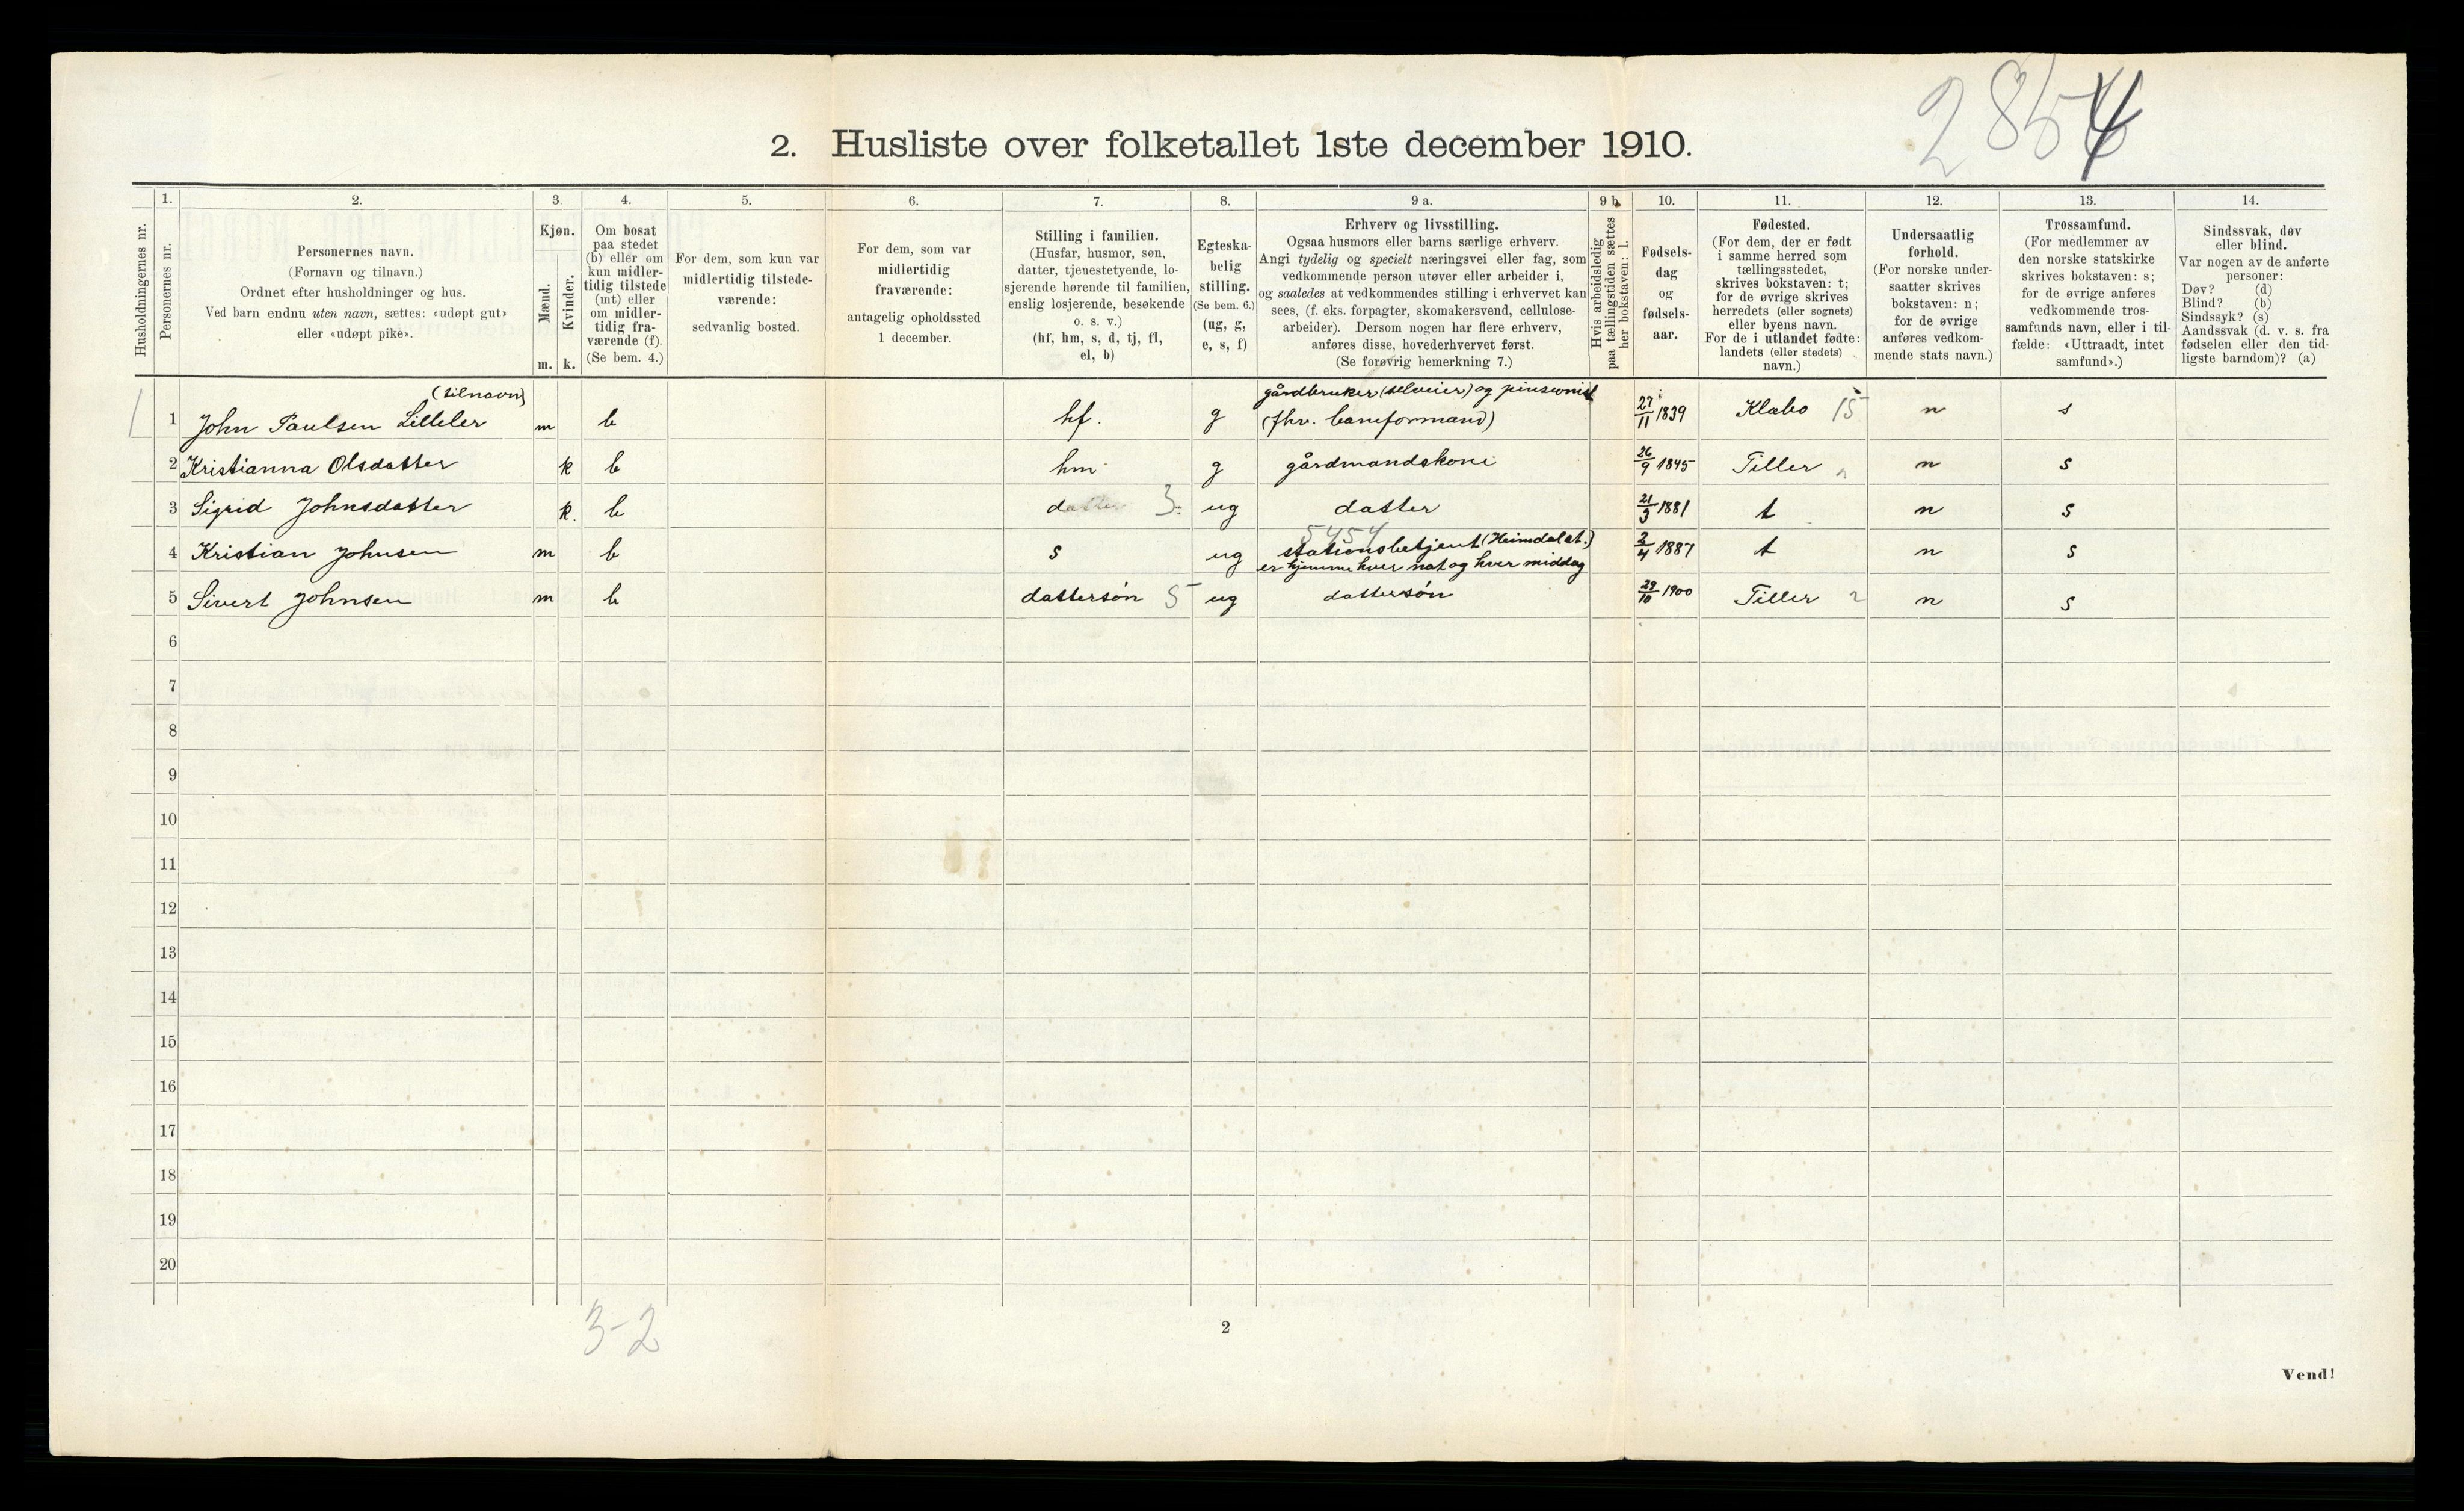 2854
2. Husliste over folketallet 1ste december 1910.
Husholdningernes nr.
1.
Personernes nr.
2.
Personernes navn.
(Fornavn og tilnavn.)
Ordnet efter husholdninger og hus.
Ved barn endnu uten navn, sættes: «udøpt gut»
eller «udøpt pike».
3.
Kjøn.
Mænd.
m.
Kvinder.
k.
4.
Om bosat
paa stedet
(b) eller om
kun midler-
tidig tilstede
(mt) eller
om midler-
tidig fra-
værende (f).
(Se bem. 4.)
5.
For dem, som kun var
midlertidig tilstede-
værende:
sedvanlig bosted.
6.
For dem, som var
midlertidig
fraværende:
antagelig opholdssted
1 december.
7.
Stilling i familien.
(Husfar, husmor, søn,
datter, tjenestetyende, lo-
sjerende hørende til familien,
enslig losjerende, besøkende
o. s. v.)
(hf, hm, s, d, tj, fl,
el, b)
8.
Egteska-
belig
stilling.
(Se bem. 6.)
(ug, g,
e, s, f)
9 a.
Erhverv og livsstilling.
Ogsaa husmors eller barns særlige erhverv.
Angi tydelig og specielt næringsvei eller fag, som
vedkommende person utøver eller arbeider i,
og saaledes at vedkommendes stilling i erhvervet kan
sees, (f. eks. forpagter, skomakersvend, cellulose-
arbeider). Dersom nogen har flere erhverv,
anføres disse, hovederhvervet først.
(Se forøvrig bemerkning 7.)
9 b.
Hvis arbeidsledig
paa tællingstiden sættes
her bokstaven: l.
10.
Fødsels-
dag
og
fødsels-
aar.
11.
Fødested.
(For dem, der er født
i samme herred som
tællingsstedet,
skrives bokstaven: t;
for de øvrige skrives
herredets (eller sognets)
eller byens navn.
For de i utlandet fødte:
landets (eller stedets)
navn.)
12.
Undersaatlig
forhold.
(For norske under-
saatter skrives
bokstaven: n;
for de øvrige
anføres vedkom-
mende stats navn.)
13.
Trossamfund.
(For medlemmer av
den norske statskirke
skrives bokstaven: s;
for de øvrige anføres
vedkommende tros-
samfunds navn, eller i til-
fælde: «Uttraadt, intet
samfund».)
14.
Sindssvak, døv
eller blind.
Var nogen av de anførte
personer:
Døv? (d)
Blind? (b)
Sindssyk? (s)
Aandssvak (d. v. s. fra
fødselen eller den tid-
ligste barndom)? (a)
(tilnavn) gårdbruker (selveier) og pinsionist
1 1 John Paulsen Lilleler m b hf. g (fhv. baneformand) 27/11 1839 Klæbo 15 n s
2 Kristianna Olsdatter k b hm g gårdmandskone 26/9 1845 Tiller 2 n s
3 Sigrid Johnsdatter k. b datter 3 ug datter 21/3 1881 t n s
5454
4 Kristian Johnsen m b s ug stationsbetjent (Heimdal st.) 2/4 1887 t n s
er hjemme hver nat og hver middag
5 Sivert Johnsen m b dattersön 5 ug dattersön 29/10 1900 Tiller 2 n s
6
7
8
9
10
11
12
13
14
15
16
17
18
19
20
3-2
2
Vend!